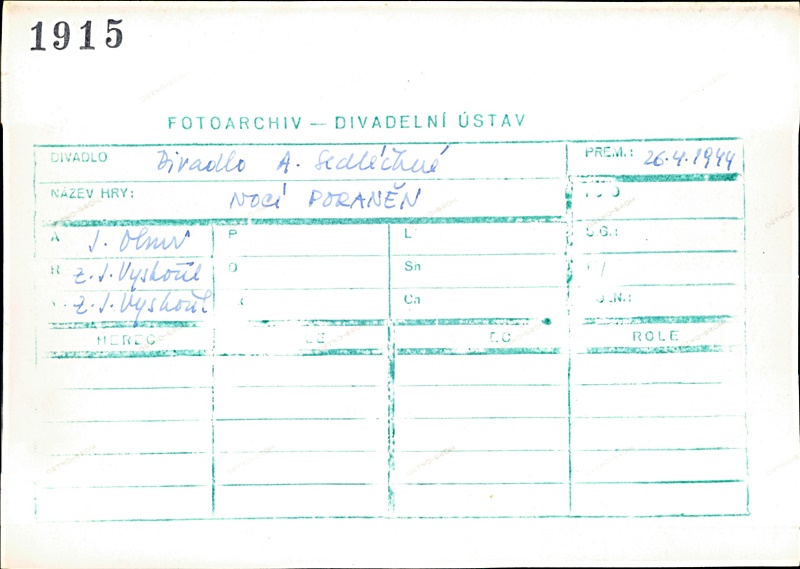 1915
FOTOARCHIV — DIVADELNÍ ÚSTAV
DIVADLO Divadlo A. Sedláčkové PREM.: 26.4.1944
NÁZEV HRY: NOCÍ PORANĚN
A J. Olmr P L
R Z. J. Vyskočil O Sn
Z. J. Vyskočil Ch
HEREC ROLE